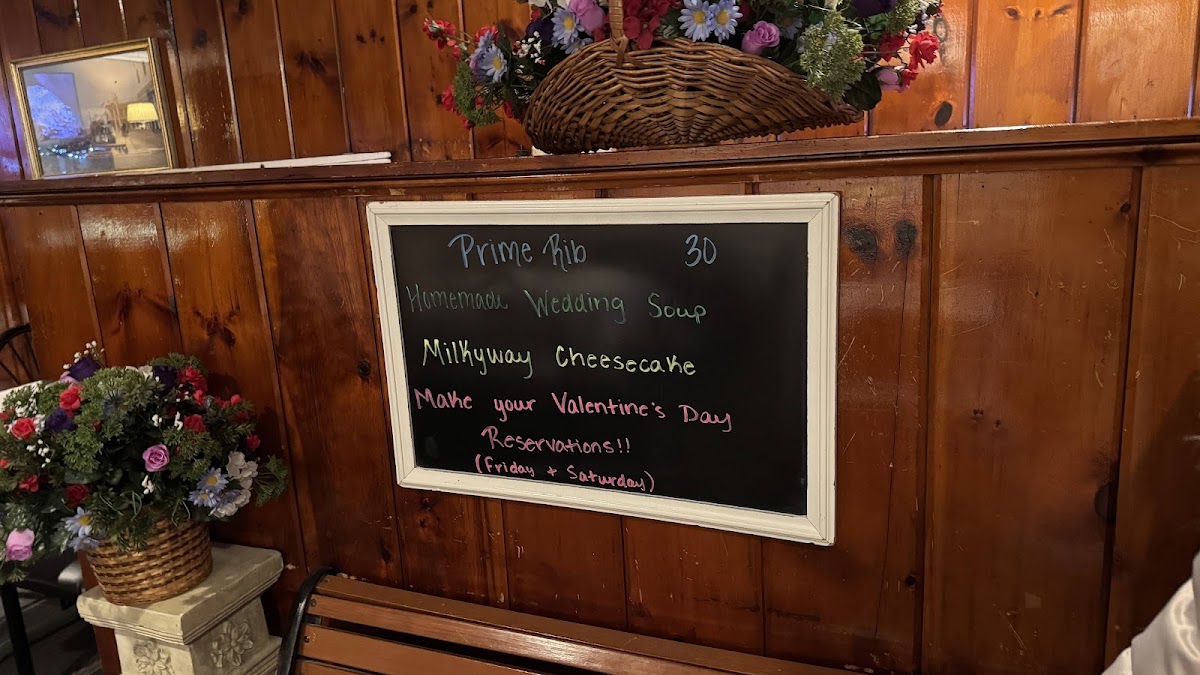 Prime Rib 30
Homemade Wedding Soup
Milkyway Cheesecake
Make your Valentine's Day
Reservations!!
(Friday + Saturday)